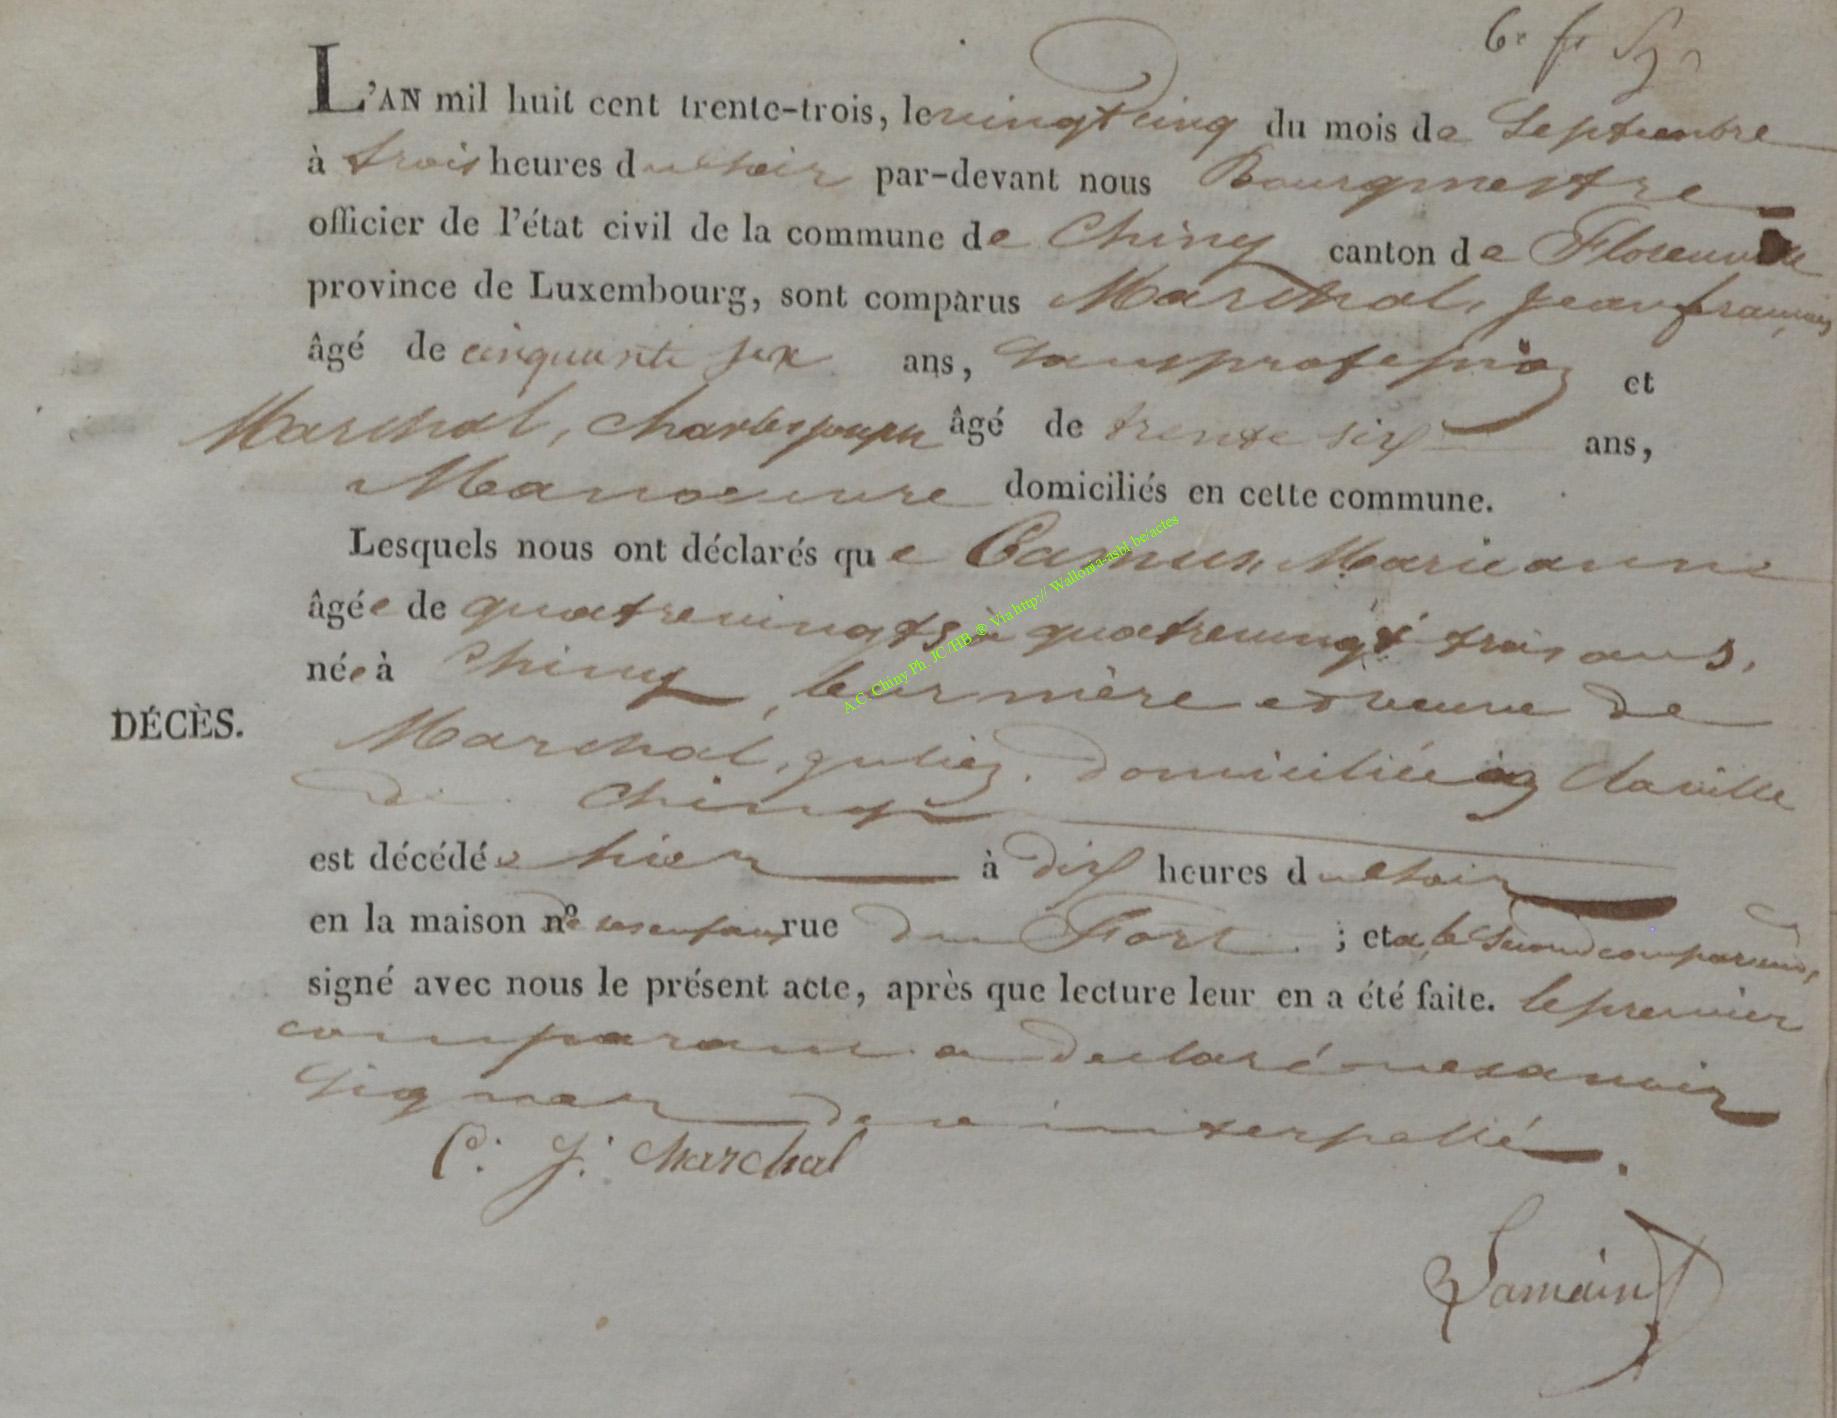 L'AN mil huit cent trente-trois, le vingt cinq du mois de Septembre
à trois heures du soir par-devant nous Bourgmestre
officier de l'état civil de la commune de Chiny canton de Florenville
province de Luxembourg, sont comparus Marchal, jean françois
âgé de cinquante six ans, sans profession et
Marchal, Charles joseph âgé de trente six ans,
Manoeuvre domiciliés en cette commune.
Lesquels nous ont déclarés que Camus, Marie anne
âgée de quatrevingts à quatrevingt trois ans,
née à Chiny, leur mère et veuve de
DÉCÈS.
Marchal, julien, domiciliée en la ville
de Chiny
est décédée hier à dix heures du soir
en la maison de ses enfans rue du Fort ; et a, le second comparant,
signé avec nous le présent acte, après que lecture leur en a été faite. le premier
comparant a declaré ne savoir
signer de ce interpellé.
C. J. Marchal
Lamain
A.C. Chiny Ph. JC/HB ® Via http:// Wallonia-asbl be/actes